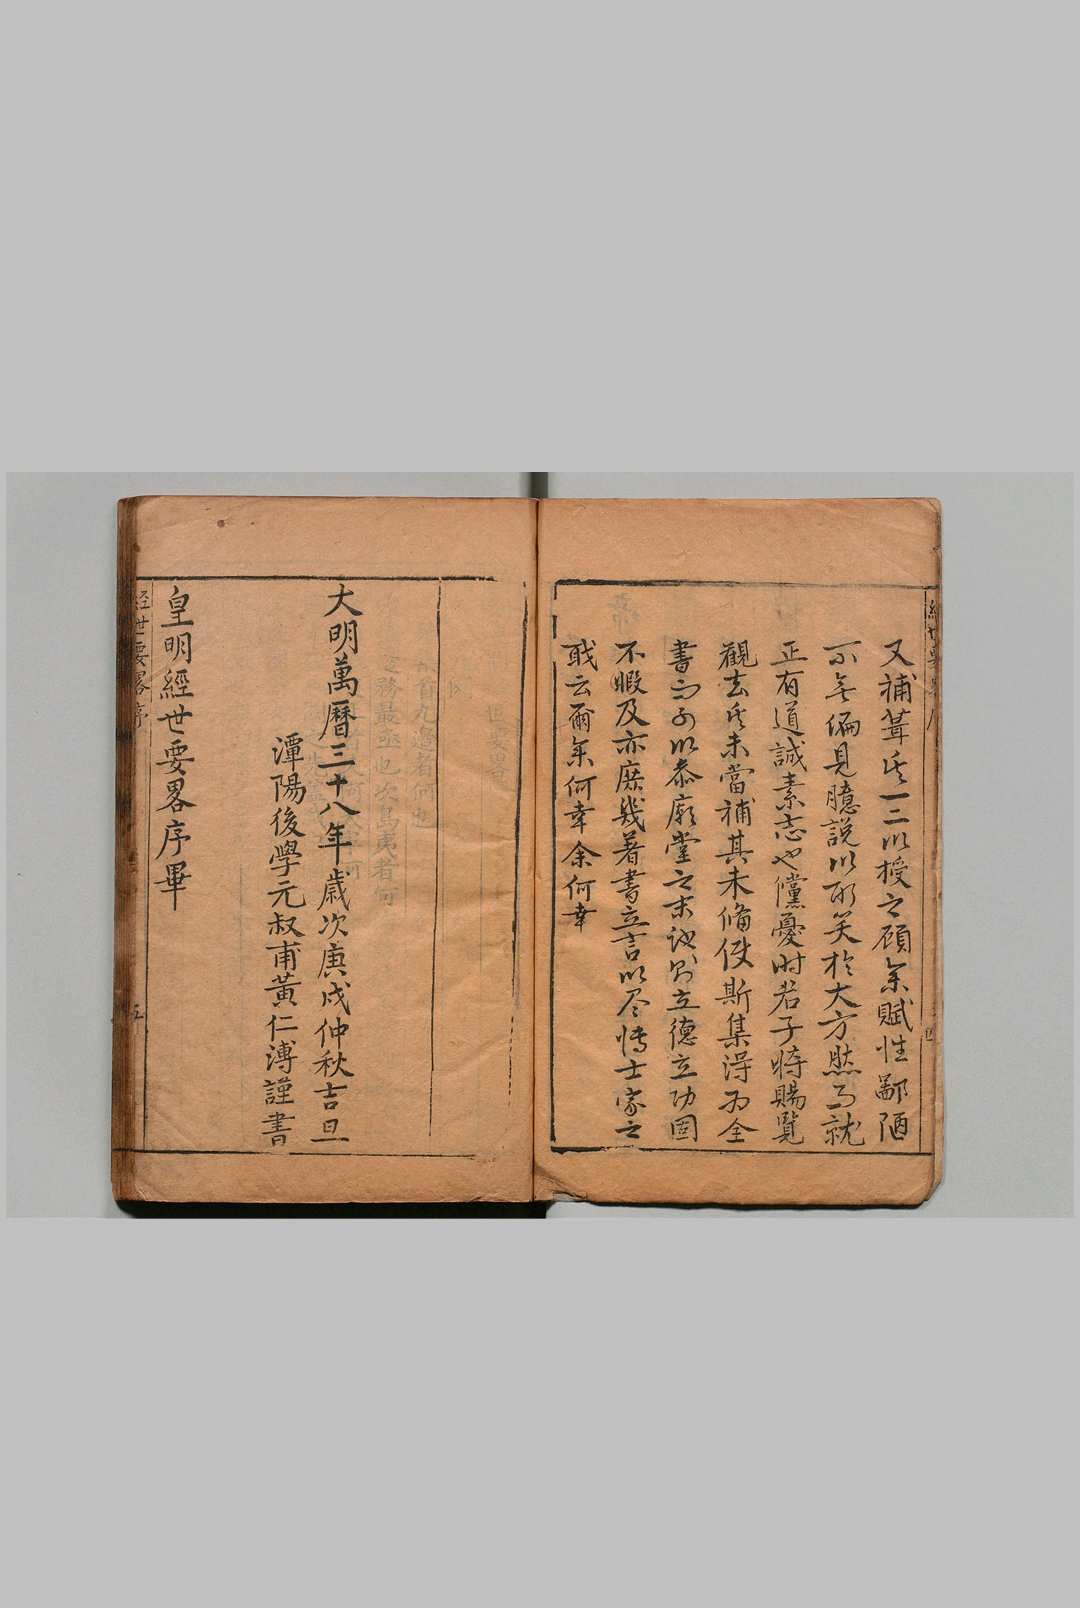 又補葺其一二以授之顧余賦性鄙陋
不無偏見臆說以取笑於大方然而就
正有道誠素志也儻憂時君子時賜覽
觀去其未當補其未備使斯集得為全
書而可以恭廟堂之末議則立德立功固
不暇及亦庶幾著書立言以尽博士家之
職云爾余何幸余何幸
經世要畧序
四
大明萬曆三十八年歲次庚戌仲秋吉旦
潭陽後學元叔甫黃仁溥謹書
皇明經世要畧序畢
經世要畧序
五